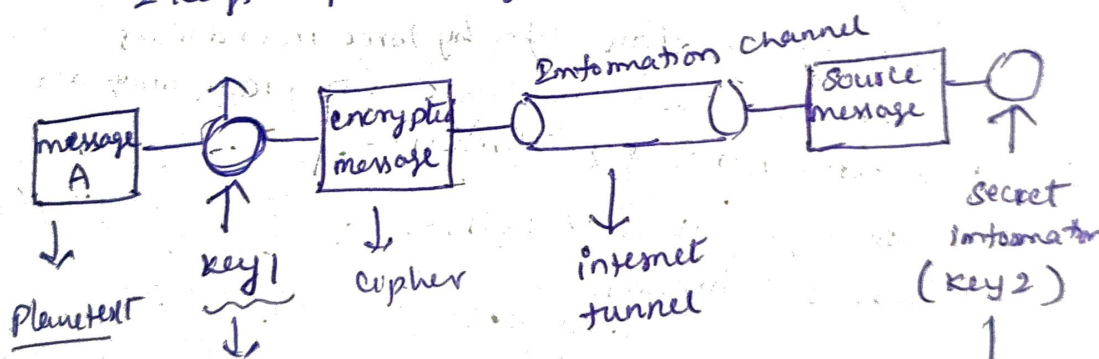 Information channel
message
A
encrypted
message
source
message
key1
cipher
internet
tunnel
secret
information
(key2)
Planetext